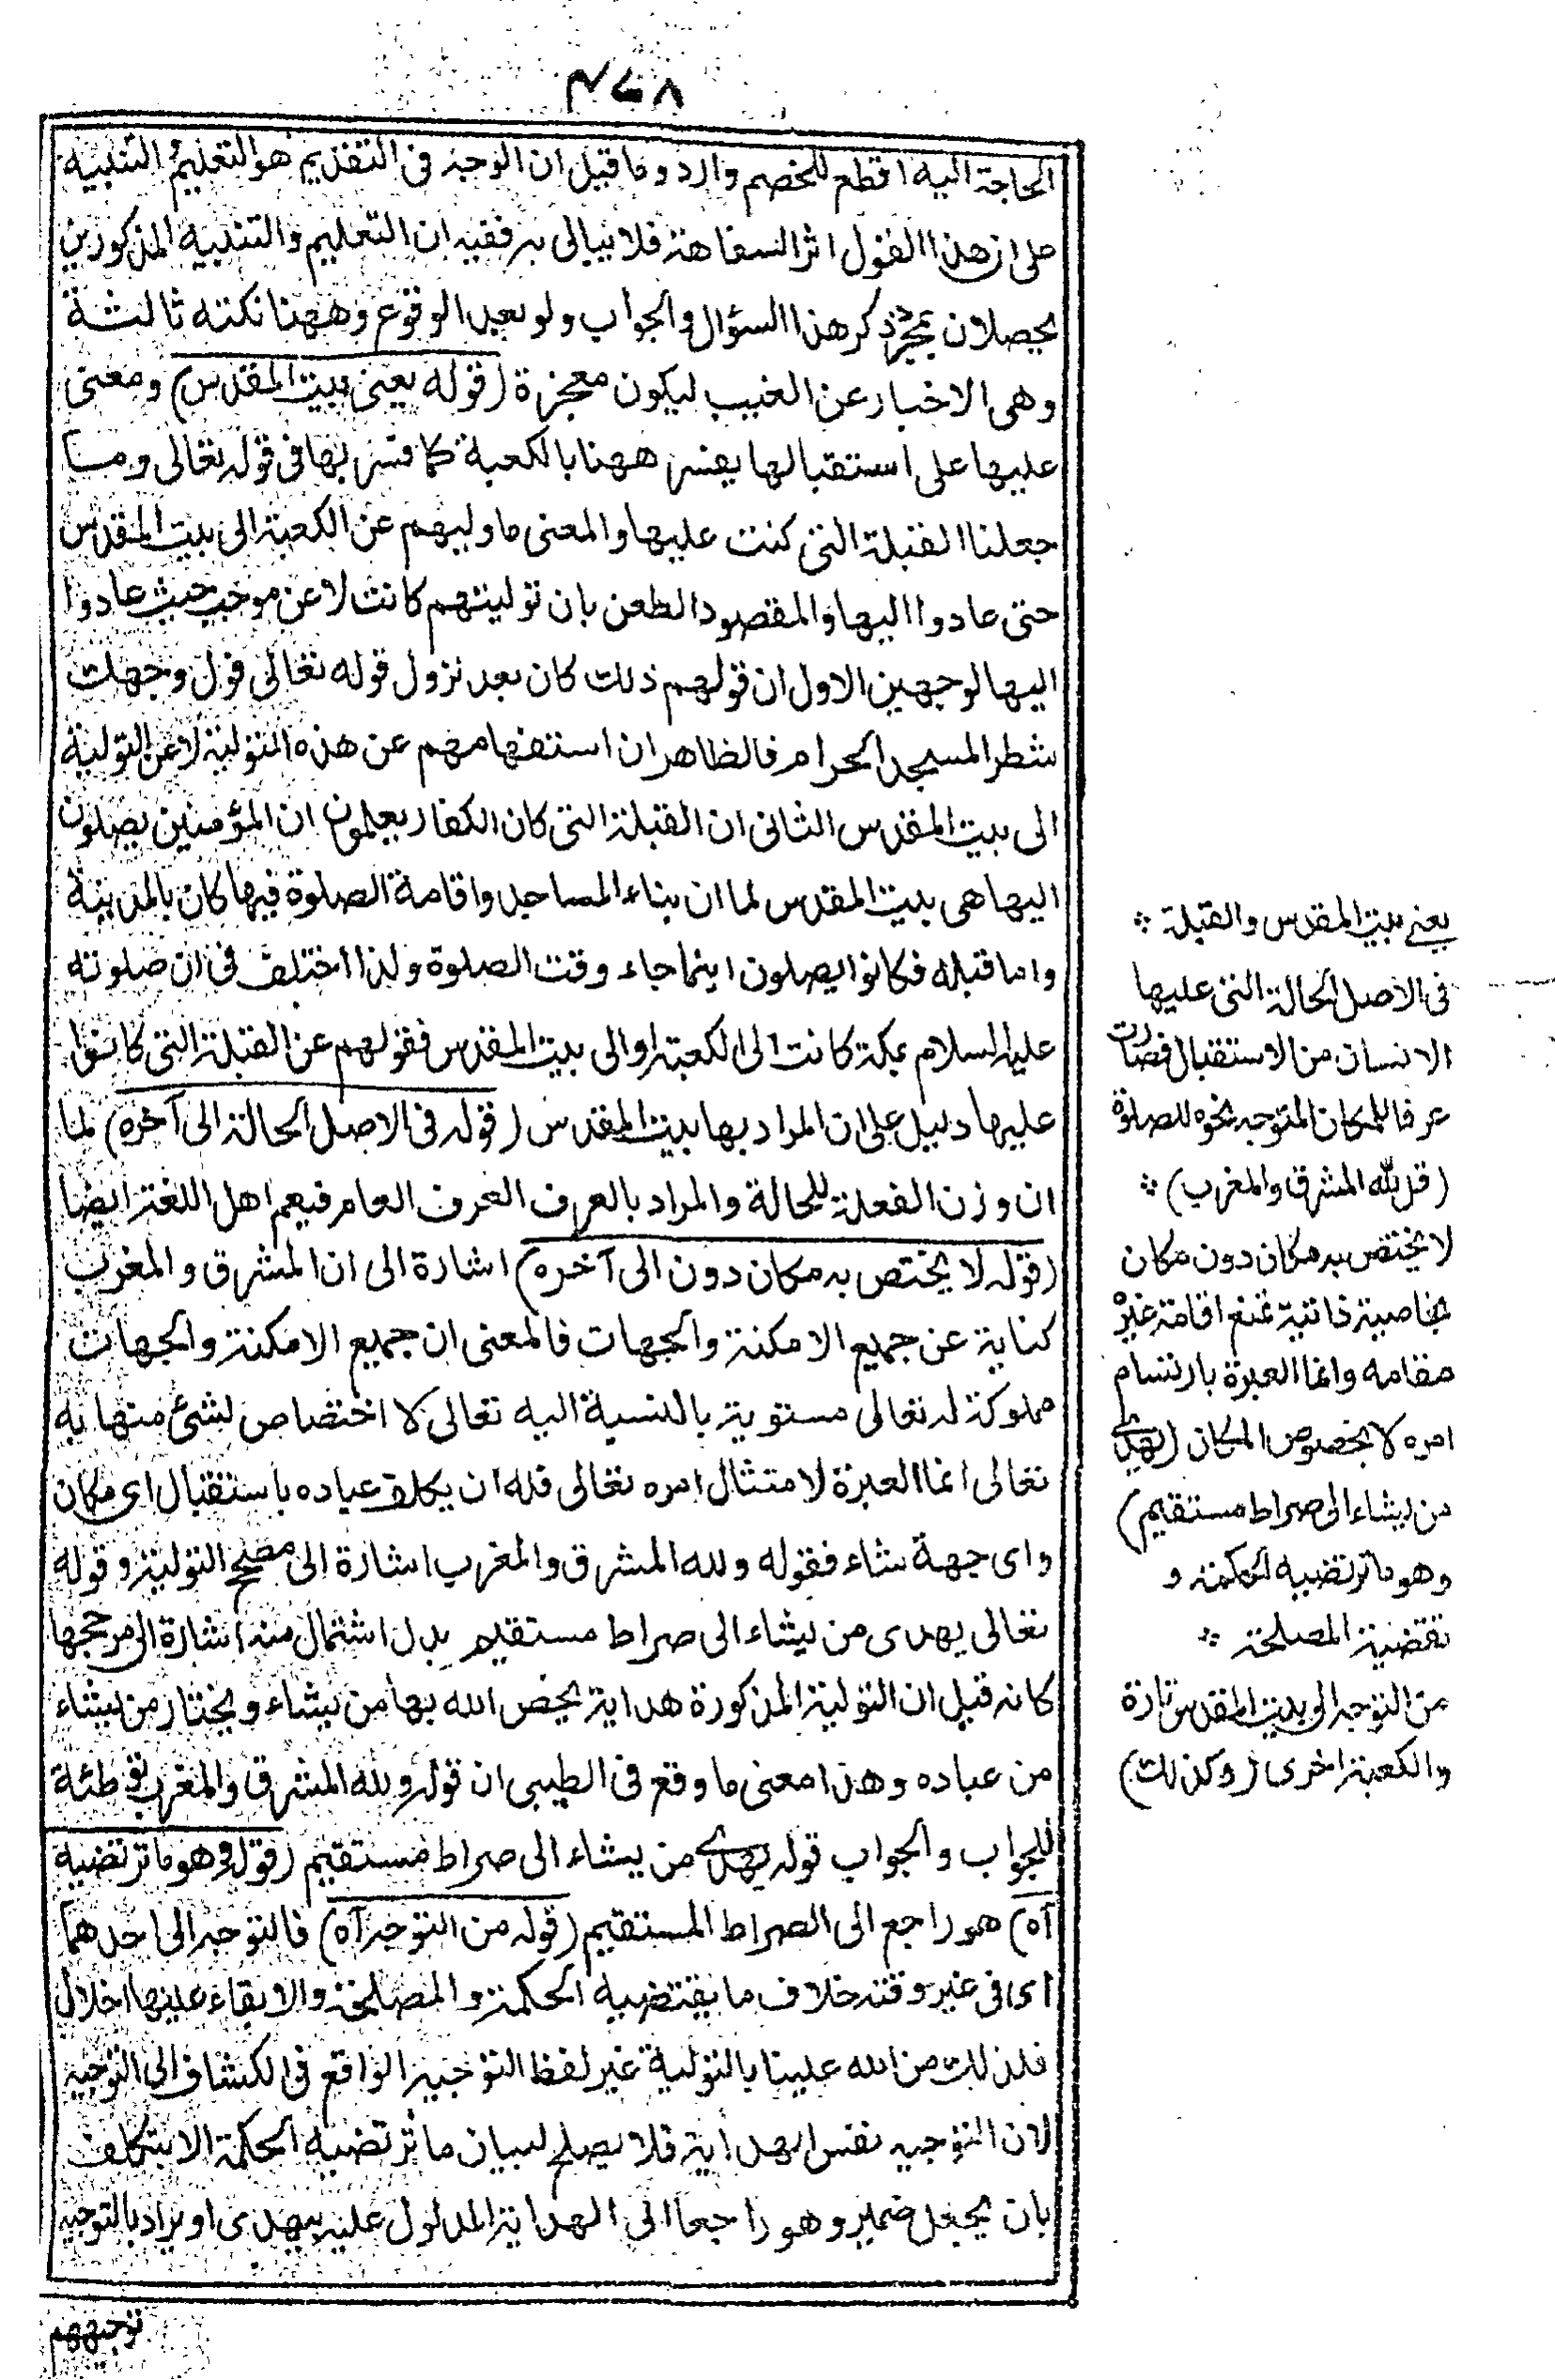 ٤٧٨
الحاجة اليه اقطع للخصم وارد وما قيل ان الوجه فى التقديم هو التعليم التنبيه
على ان هذا القول اثر السفاهة فلا يبالى به ففيه ان التعليم والتنبيه المذكورين
يحصلان بمجرد ذكر هذا السؤال والجواب ولو بعد الوقوع وههنا نكته ثالثة
وهى الاخبار عن الغيب ليكون معجزة (قوله يعنى بيت المقدس) ومعنى
عليها على استقبالها يفسر ههنا بالكعبة كما فسر بها فى قوله تعالى وما
جعلنا القبلة التى كنت عليها والمعنى ما وليهم عن الكعبة الى بيت المقدس
حتى عادوا اليها والمقصود الطعن بان توليتهم كانت لا عن موجب حيث عادوا
اليها لوجهين الاول ان قولهم ذلك كان بعد نزول قوله تعالى فول وجهك
شطر المسجد الحرام فالظاهر ان استفهامهم عن هذه التولية لا عن التولية
الى بيت المقدس الثانى ان القبلة التى كان الكفار يعلمون ان المؤمنين يصلون
اليها هى بيت المقدس لما ان بناء المساجد واقامة الصلوة فيها كان بالمدينة
واما قبله فكانوا يصلون اينما جاء وقت الصلوة ولذا اختلف فى ان صلوته
عليه السلام بمكة كانت الى الكعبة او الى بيت المقدس فقولهم عن القبلة التى كانوا
عليها دليل على ان المراد بها بيت المقدس (قوله فى الاصل الحالة الى آخره) لما
ان وزن الفعلة للحالة والمراد بالعرف العرف العام فيعم اهل اللغة ايضا
(قوله لا يختص به مكان دون الى آخره) اشارة الى ان المشرق والمغرب
كناية عن جميع الامكنة والجهات فالمعنى ان جميع الامكنة والجهات
مملوكة له تعالى مستوية بالنسبة اليه تعالى لا اختصاص لشئ منها به
تعالى انما العبرة لامتثال امره تعالى فله ان يكلف عباده باستقبال اى مكان
واى جهة شاء فقوله ولله المشرق والمغرب اشارة الى مصحح التولية وقوله
تعالى يهدى من يشاء الى صراط مستقيم بدل اشتمال منه اشارة الى مرجحها
كانه قيل ان التولية المذكورة هداية يخص الله بها من يشاء ويختار من يشاء
من عباده وهذا معنى ما وقع فى الطيبى ان قوله ولله المشرق والمغرب توطئة
للجواب والجواب قوله يهدى من يشاء الى صراط مستقيم (قوله وهو ما ترتضيه
آه) هو راجع الى الصراط المستقيم (قوله من التوجه آه) فالتوجه الى احدهما
اى فى غير وقته خلاف ما يقتضيه الحكمة والمصلحة والابقاء عليها اخلال
فلذلك من الله علينا بالتولية غير لفظ التوجيه الواقع فى الكشاف الى التوجه
لان التوجيه نفس الهداية فلا يصلح لبيان ما ترتضيه الحكمة الا بتكلف
بان يجعل ضمير وهو راجعا الى الهداية المدلول عليه بيهدى او يراد بالتوجيه
توجيههم
يعنى بيت المقدس والقبلة
فى الاصل الحالة التى عليها
الانسان من الاستقبال فصارت
عرفا للمكان المتوجه نحوه للصلوة
(قل لله المشرق والمغرب)
لا يختص به مكان دون مكان
بخاصية ذاتية تمنع اقامة غيره
مقامه وانما العبرة بارتسام
امره لا بخصوص المكان (يهدى
من يشاء الى صراط مستقيم)
وهو ما ترتضيه الحكمة و
تقتضيه المصلحة
من التوجه الى بيت المقدس تارة
والكعبة اخرى (وكذلك)